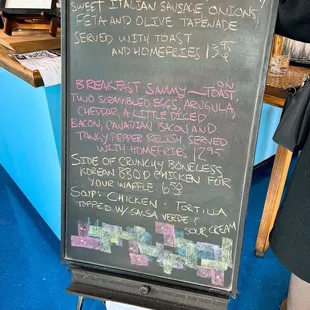 SWEET ITALIAN SAUSAGE, ONIONS,
FETA AND OLIVE TAPENADE
SERVED WITH TOAST
AND HOMEFRIES 13
BREAKFAST SAMMY - ON TOAST,
TWO SCRAMBLED EGGS, ARUGULA,
CHEDDAR, A LITTLE DICED
BACON, CANADIAN BACON AND
TANGY PEPPER RELISH SERVED
WITH HOMEFRIES 12.95
SIDE OF CRUNCHY BONELESS
KOREAN BBQD CHICKEN FOR
YOUR WAFFLE 6.50
SOUP: CHICKEN TORTILLA
TOPPED W/ SALSA VERDE &
SOUR CREAM